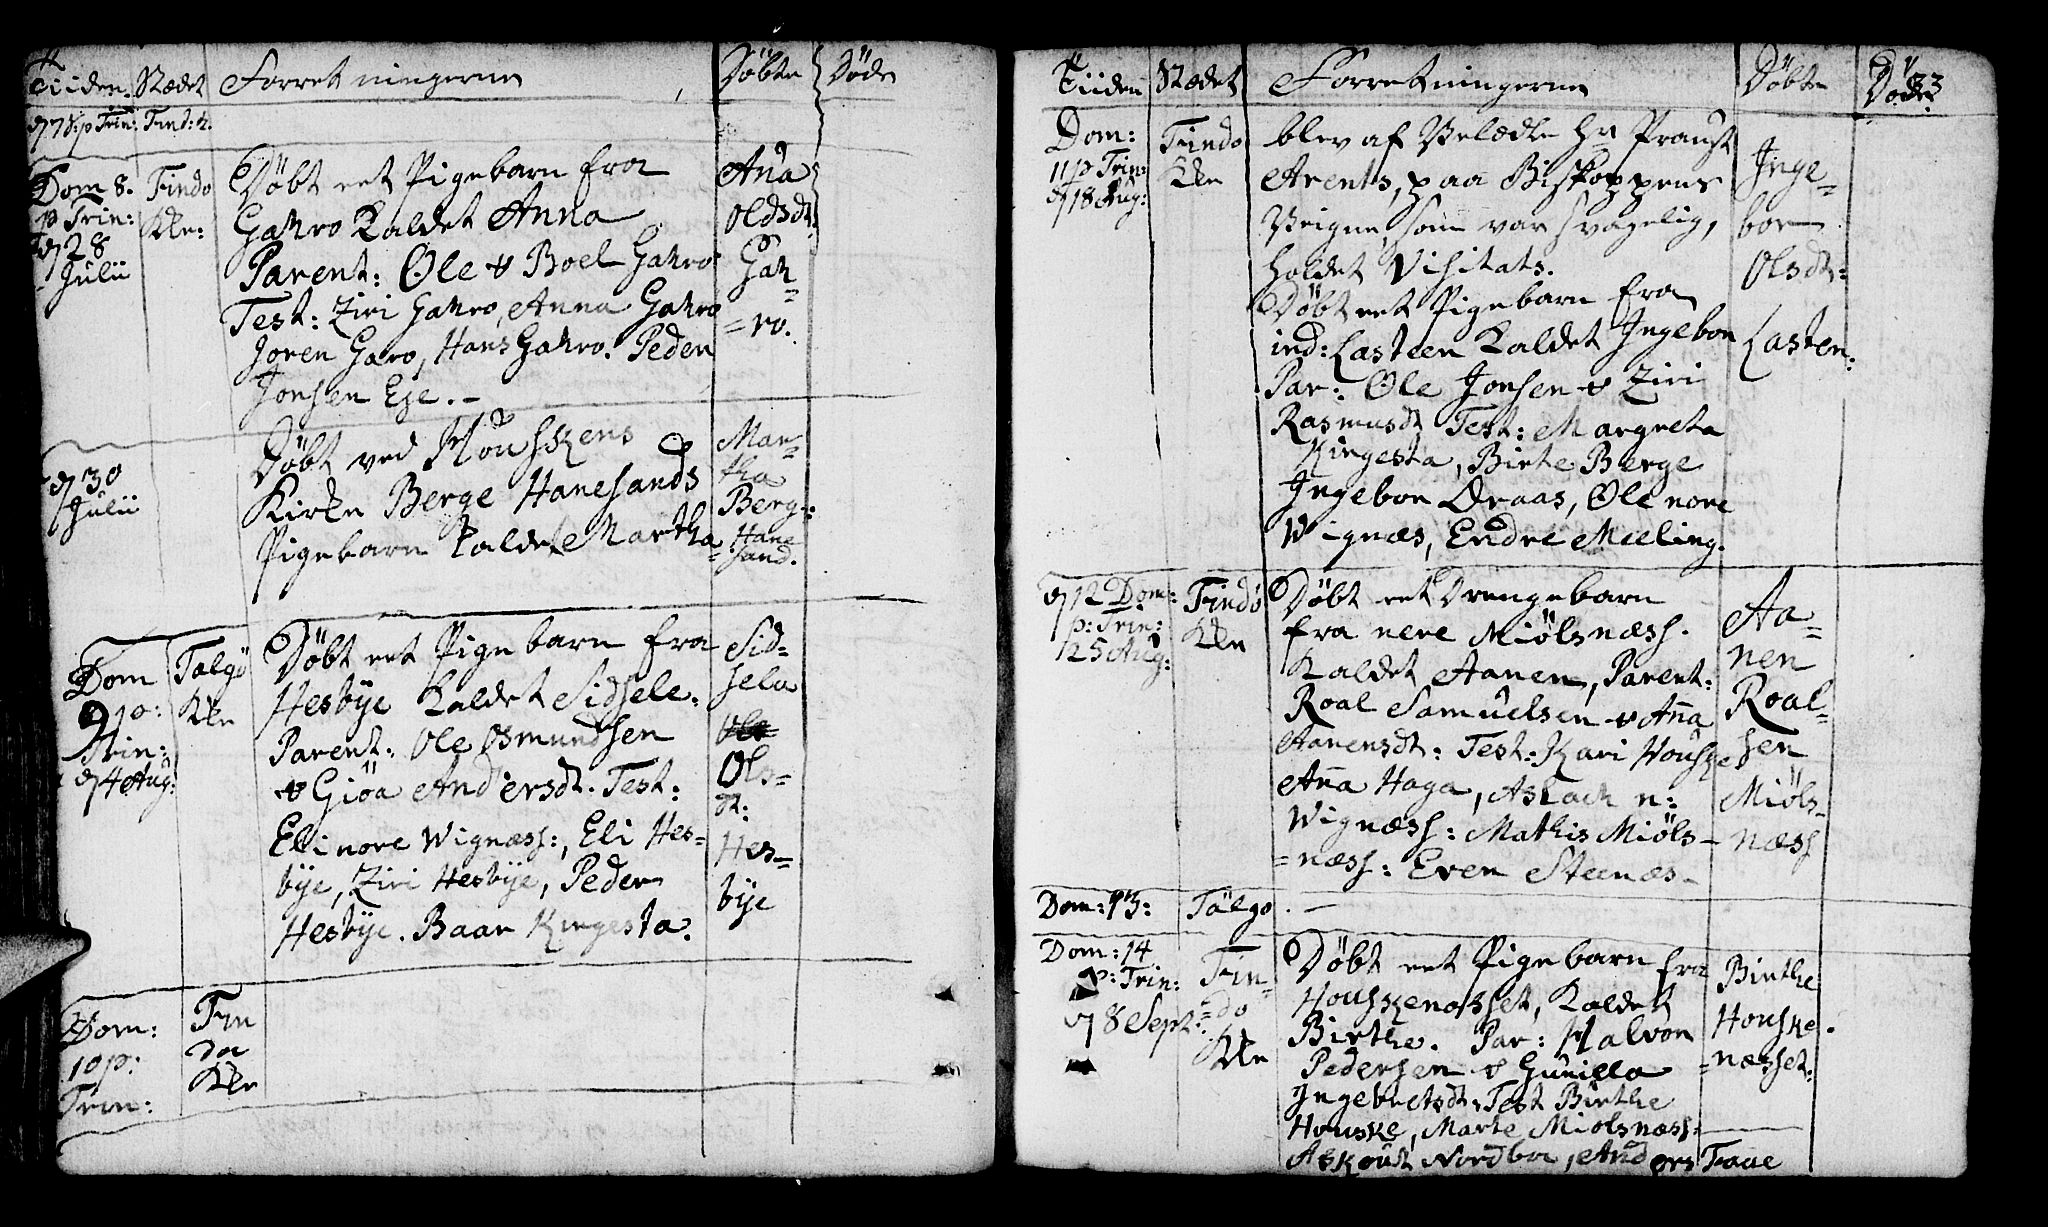 Tiiden. Stædet Forretningerne Döbte Döde
d 7 s: p Trin: Find: k.
Dom 8. p Trin: d 28 Julii
Findö Kke:
Döbt eet Pigebarn fra
Gahro Kaldet Anna
Parent: Ole & Boel Gahro
Test: Ziri Gahro, Anna Gahro
Jören Garo, Hans Gahro. Peder
Jonsen Eje. -
Ana
Oldsdt:
Gah-
=ro.
d 30 Julii
Döbt ved Houskens
Kirke Berge Hanesands
Pigebarn kaldet Martha
Mar-
tha
Berg:
Hane
sand.
Dom
9 p:
Trin:
d 4 Aug:
Talgö
Kke
Döbt eet Pigebarn fra
Hesbÿe Kaldet Sidsele.
Parent: Ole Osmundsen
& Giöa Andersdt. Test:
Eli nore Wignæss:, Eli Hes-
bÿe, Ziri Hesbÿe, Peder
Hesbÿe. Baar Kingesta.
Sid-
sela
Ols-
dt:
Hes-
bÿe
Dom:
10 p:
Trin:
Fin
dö
Kke
Tiiden Stædet Forretningerne Döbte Döde
33
Dom:
11 p Trin:
d 18 Aug:
Findö
Kke
blev af Velædle Hr Praust
Arents, paa Biskoppens
Veigne, som var svagelig,
holdet Visitats.
Döbt eet Pigebarn fra
ind: Lasteen Kaldet Ingebor
Par: Ole Jonsen & Ziri
Rasmusdt Test: Margreta
Kingesta, Birte Berge
Ingebor Oraas, Ole nore
Wignæs, Endre Meeling.
Inge-
bor
Olsdt:
Lasten:
d 12 Dom:
p: Trin:
25 Aug:
Findö
Kke
Döbt eet Drengebarn
fra nere Miölsnæss.
Kaldet Aanen, Parent:
Roal Samuelsen & Ana
Aanensdt: Test: Kari Houske
Ana Haga, Aslach n:
Wignæss: Mathis Miöls-
=næss: Even Steenæs-
Aa-
nen
Roal-
sen
Miöls-
næss
Dom: 13: Talgo. -
Dom: 14
p: Trin:
d 8 Sept:
Fin-
=do
Kke
Döbt eet Pigebarn fra
Houskenæsset, Kaldet
Birthe. Par: Halvor
Pedersen & Gunilla
Ingebretsdt: Test Birthe
Houske, Marte Miolsnæss:
Askoudt Nordboe, Anders Faae
Birthe
Houske.
=næsset: